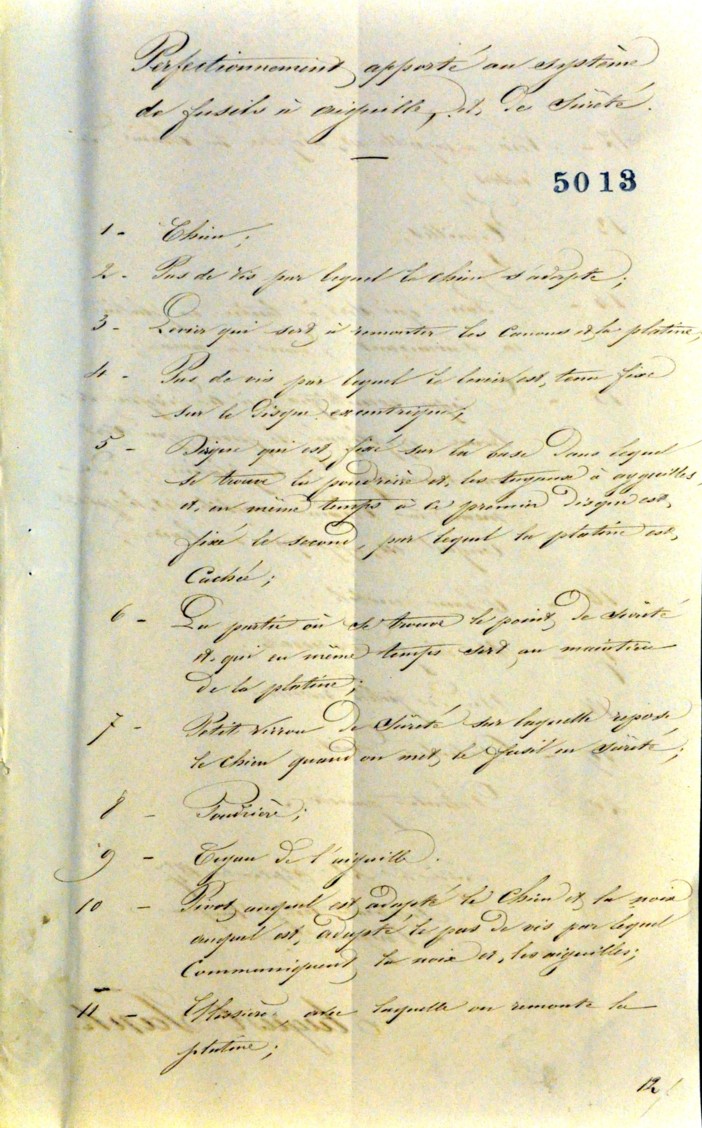 Perfectionnement apporté au système
de fusils à aiguille, et de sûreté.
5013
1 - Chien;
2 - Pas de vis par lequel le chien s'adapte;
3 - Levier qui sert à remonter les canons et la platine;
4 - Pas de vis par lequel le levier est tenu fixe
sur le disque excentrique;
5 - Disque qui est fixé sur la base dans lequel
se trouve la poudrière et les tuyaux à ayguilles,
et en même temps à ce premier disque est
fixé le second, par lequel la platine est
Cachée;
6 - La partie où se trouve le point de sûreté
et qui en même temps sert au maintien
de la platine;
7 - Petit verrou de sûreté sur laquelle repose
le chien quand on met le fusil en sûreté;
8 - Poudrière;
9 - Tuyau de l'aiguille.
10 - Pivot auquel est adapté le Chien et la noix
auquel est adapté le pas de vis par lequel
Communiquent la noix et les aiguilles;
11 - avec laquelle on remonte la
platine;
12